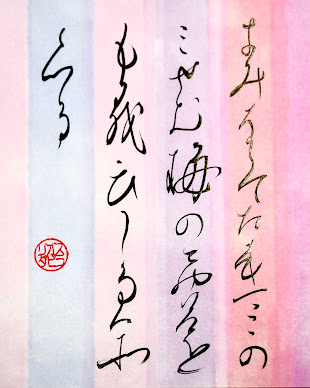 きみならてたれにか
みせむ梅の花色を
もかをもしる人そ
しる